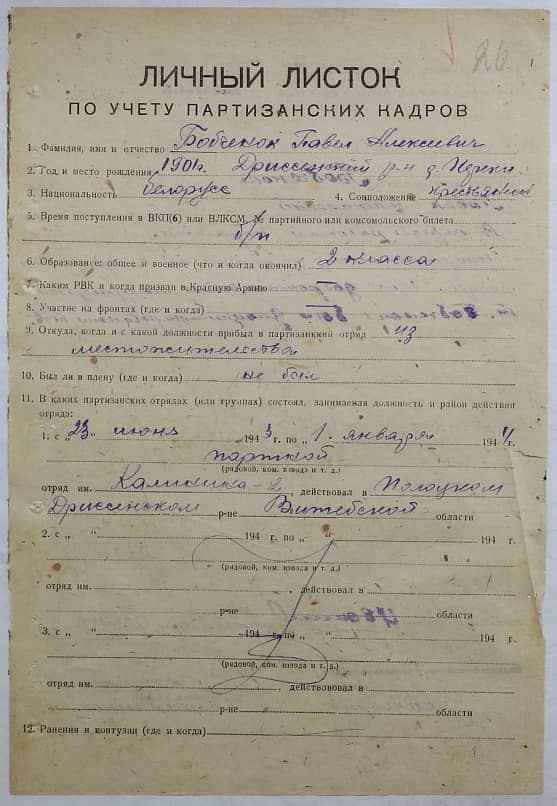 26
ЛИЧНЫЙ ЛИСТОК
ПО УЧЕТУ ПАРТИЗАНСКИХ КАДРОВ
1. Фамилия, имя и отчество Бобченок Павел Алексеевич
2. Год и место рождения 1901г. Дриссенский р-н д.
3. Национальность белорусс 4. Соцположение крестьянин
5. Время поступления в ВКП(б) или ВЛКСМ, № партийного или комсомольского билета
б/п
6. Образование: общее и военное (что и когда окончил) 2 класса
7. Каким РВК и когда призван в Красную Армию
8. Участие на фронтах (где и когда)
9. Откуда, когда и с какой должности прибыл в партизанский отряд из
местожительства
10. Был ли в плену (где и когда) не был
11. В каких партизанских отрядах (или группах) состоял, занимаемая должность и район действия
отряда:
1. с „23" июня 1943 г. по „1. января 1944г.
портной
(рядовой, ком. взвода и т. д.)
отряд им. Калинина-2 действовал в Полоцком
Дриссенском р-не Витебской области
2. с „ " 194 г. по „ " 194 г.
(рядовой, ком. взвода и т. д.)
отряд им. , действовал в
р-не области
3. с „ " 194 г. по „ " 194 г.
(рядовой, ком. взвода и т. д.)
отряд им. , действовал в
р-не области
12. Ранения и контузии (где и когда)